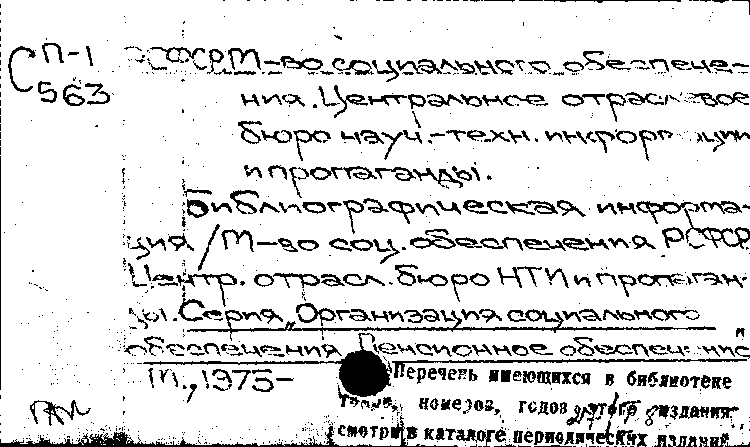 СП-1
563
РСФСР М-во социального обеспече-
ния. Центральное отраслевое
бюро науч.-техн. информации
и пропаганды.
Библиографическая информа-
ция / М-во соц. обеспечения РСФСР
Центр. отрасл. бюро НТИ и пропаган-
ды. Серия „Организация социального
обеспечения Пенсионное обеспечение
М., 1975-
Перечень имеющихся в библиотеке
номеров, годов этого издания
смотри в каталоге периодических изданий